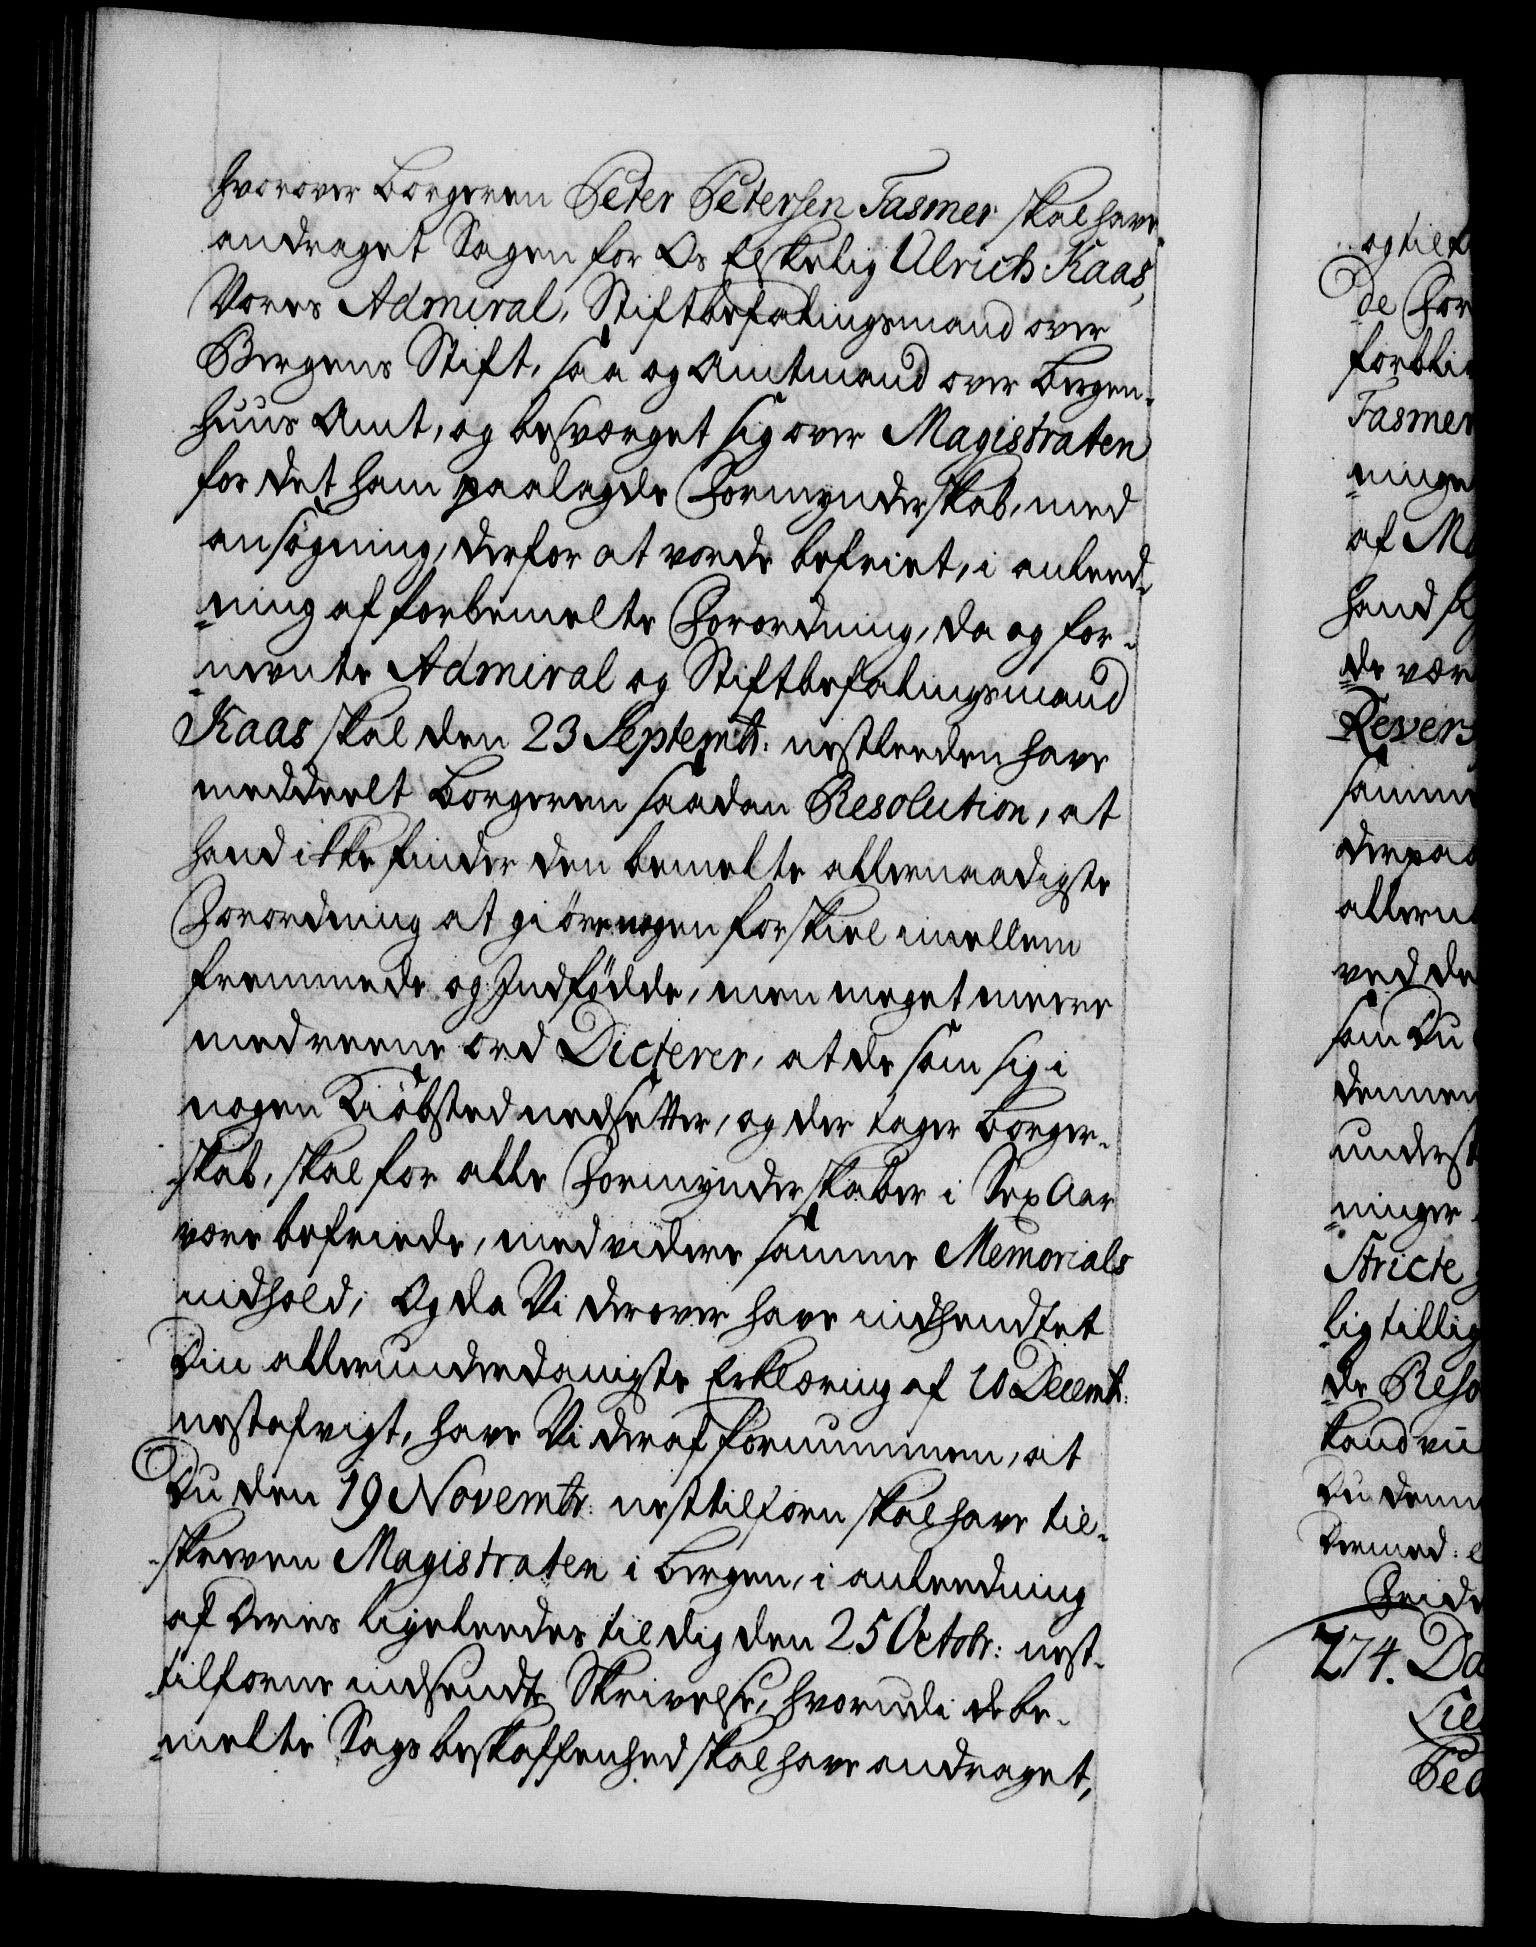 hvorover borgeren Peter Petersen Fasmer skal have
andraget Sagen for Os Elskelig Ulrich Kaas,
Vores Admiral, Stiftbefalingsmand over
Bergens Stift, saa og Amtmand over Bergen-
huus Amt, og besværget sig over Magistraten
for det ham paalagde Formynderskab, med
ansøgning, derfor at vorde befriet, i anleed-
-ning af forbemelte Forordning, da og for-
-nevnte Admiral og Stiftbefalingsmand
Kaas skal den 23 Septembr: nestleeden have
meddeelt borgeren saadan Resolution, at
hand ikke finder den bemelte allernaadigste
Forordning at giøre nogen forskiel imellem
fremmede og Indfødde, men meget meere
med reene ord Dicterer, at de som sig i
nogen Kiøbsted nedsetter, og der tager borger-
-skab, skal for alle Formynderskaber i Sex Aar
være befriede, med videre samme Memorials
indhold; Og da Vi derover have indhendtet
Din allerunderdanigste Erklæring af 10 Decembr:
nestafvigt, have Vi deraf fornummen, at
Du den 19 Novembr: nesttilforn skal have til-
-skreven Magistraten i Bergen, i anleedning
af Deres ligeleedes til dig den 25 Octobr: nest-
-tilforne indsendte Skrivelse, hvorudi de be-
-melte Sags beskaffenhed skal have andraget,
og til
de For
forbli
Fasmer
-ninge
af Ma
hand
de vær
Revers
samme
derpaa
allern
ved de
som Du
dennem
underst
-ninger
Stricte
lig tillig
de Reso
kand vii
Du denn
dermed:
274. Da